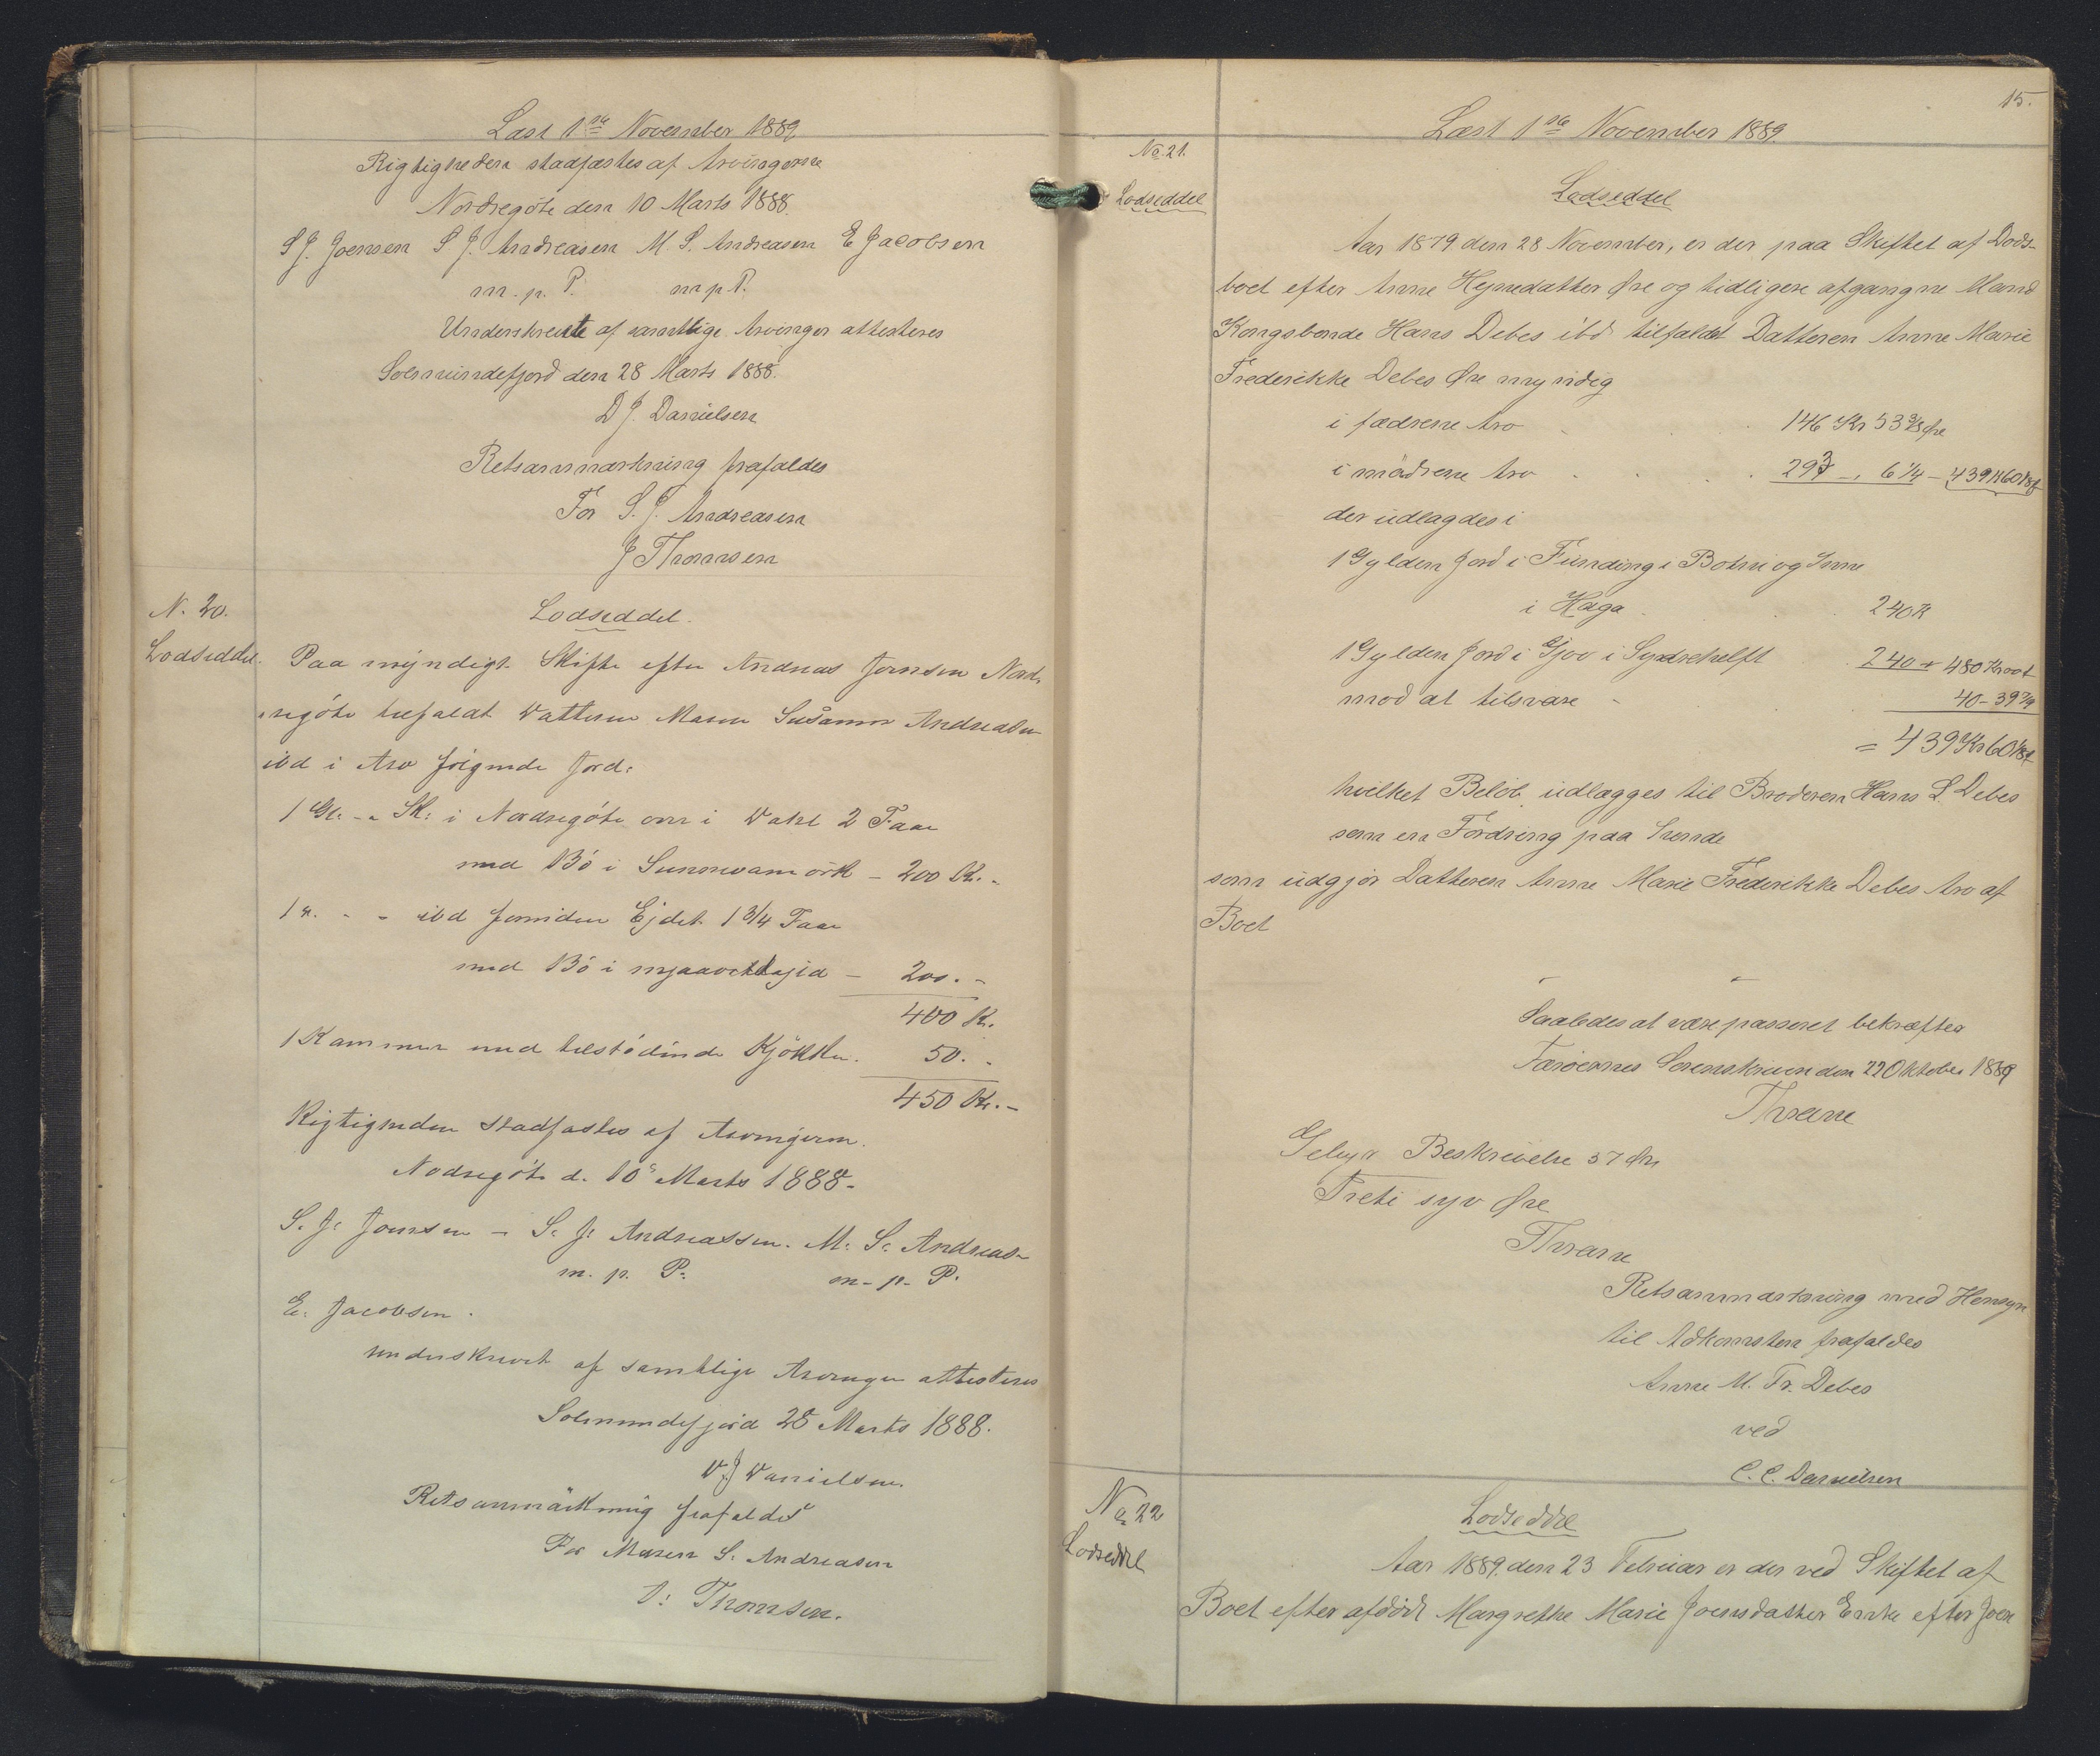 Læst 1ste November 1889.
Rigtigheden stadfæstes af Arvingerne
Nordregöte den 10 Marts 1888.
S J. Joensen S J. Andreasen M. S. Andreasen E Jacobsen
m. p. P. m p P.
Underskrevet af samtlige Arvinger attesteres
Solmundefjord den 28 Marts 1888.
D J. Danielsen
Retsanmærkning frafaldes
For S. J. Andreasen
J Thomsen
N. 20.
Lodseddel.
Lodseddel.
Paa myndigt Skifte efter Andreas Joensen Nord-
regöte tilfaldt Datteren Maren Susanne Andreasen
ibd i Arv fölgende Jord:
1 Gl. - " Sk: i Nordregöte om i Dahl 2 Faar
med Bö i - 200 Kr. -
1 " - - ibd Ejdet 1 3/4 Faar
med Bö i - 200. -
400 Kr.
1 Kammer med tilstödende Kjökken. 50. -
450 Kr. -
Rigtigheden stadfæstes af Arvingerne.
Nodregöte d. 10 Marts 1888 -
S. J. Joensen - S. J. Andreassen. M. S. Andreasen
m. p. P. m - p - P.
E. Jacobsen.
underskrevet af samtlige Arvinger attesteres
Solmundefjord 28 Marts 1888.
D. J Danielsen.
Retsanmärkning frafaldes
For Maren S. Andreasen
J: Thomsen.
15.
Læst 1ste November 1889.
No. 21.
Lodseddel
Lodseddel
Aar 1879 den 28 November, er der paa Skiftet af Döds-
boet efter Anne Hejnedatter Øre og tidligere afgangne Mand
Kongsbonde Hans Debes ibd tilfaldet Datteren Anne Marie
Frederikke Debes Øre myndig
i fædrene Arv 146 Kr 53 3/8 Øre
i mödrene Arv 293 - " 6 1/4 - 439 Kr 60
der udlagdes i
1 Gylden Jord i Funding i Botni og Inne
i Haga 240 Kr
1 Gylden Jord i Gjov i Syndrehelft 240 + 480 Kr
mod at tilsvare 40 - 39
= 439 Kr 60
hvilket Belöb udlægges til Broderen Hans L. Debes
som en Fordring paa
som udgjör Datteren Anne Marie Frederikke Debes Arv af
Boet
Saaledes at være passeret bekræftes
Færöernes Sorenskriveri den 22 Oktober 1889
Thrane
Gebyr Beskrivelse 37 Øre
Treti syv Øre
Thrane
Retsanmærkning med Hensyn
til Adkomsten frafaldes
Anne M. Fr. Debes
ved
C. C. Danielsen
No. 22
Lodseddel
Lodseddel
Aar 1889. den 23 Februar er der ved Skiftet af
Boet efter afdöde Margrethe Marie Joensdatter Enke efter Joen